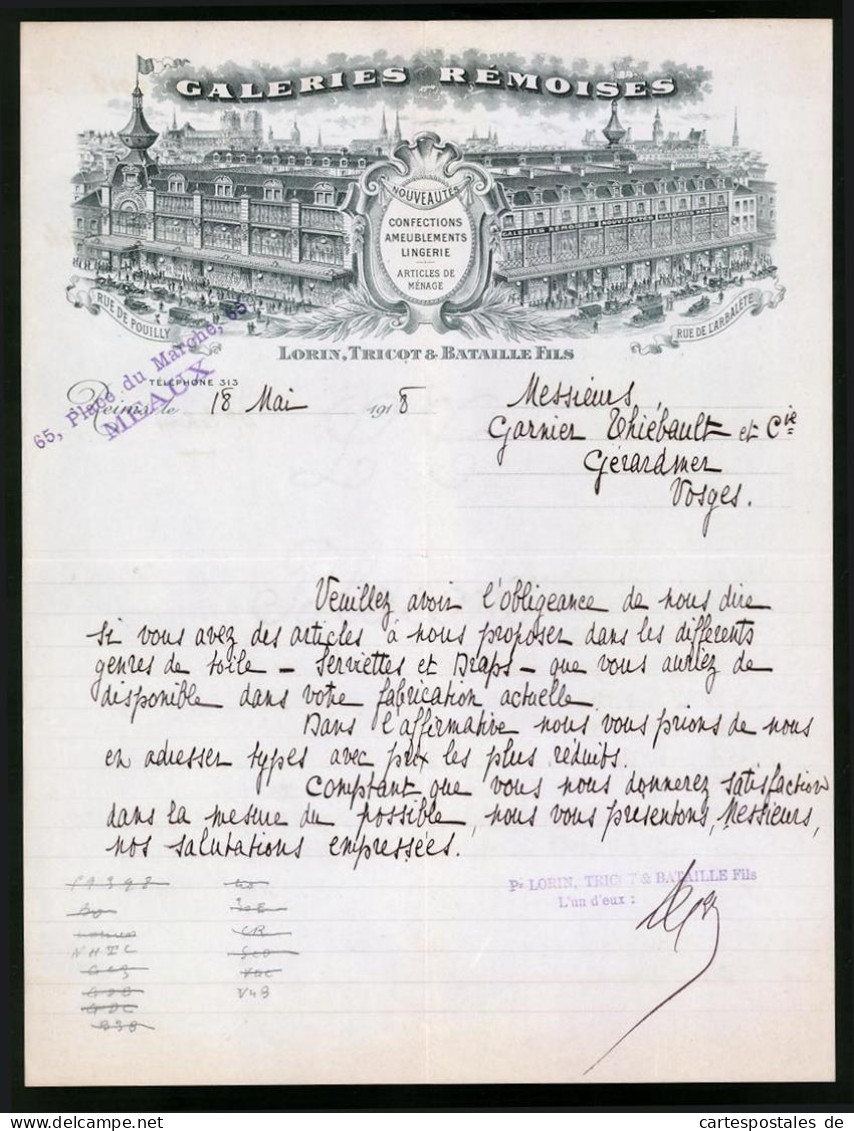 GALERIES RÉMOISES
NOUVEAUTÉS
CONFECTIONS
AMEUBLEMENTS
LINGERIE
ARTICLES DE
MÉNAGE
GALERIES RÉMOISES NOUVEAUTÉS GALERIES RÉMOISES
RUE DE POUILLY
RUE DE L'ARBALÈTE
LORIN, TRICOT & BATAILLE FILS
TÉLÉPHONE 313
65, Place du Marché, 65
MEAUX
Reims, le 18 Mai 1918
Messieurs
Garnier Thiébault et Cie
Gérardmer
Vosges.
Veuillez avoir l'obligeance de nous dire
si vous avez des articles à nous proposer dans les différents
genres de toile - Serviettes et Draps - que vous auriez de
disponible dans votre fabrication actuelle.
Dans l'affirmative nous vous prions de nous
en adresser types avec prix les plus réduits.
Comptant que vous nous donnerez satisfaction
dans la mesure du possible, nous vous présentons, Messieurs,
nos salutations empressées.
Pr LORIN, TRICOT & BATAILLE Fils
L'un d'eux :
NHIC
CR
V43
cartespostales de